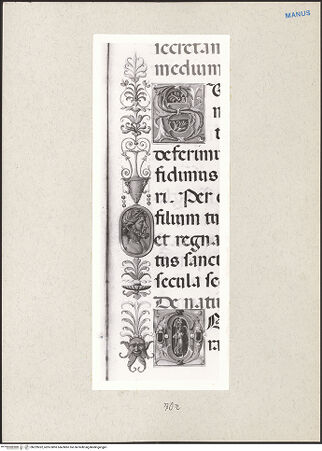 MANUS
secretam
medium
S
t
deferimu
fidimus
ri. Per
filium tu
et regna
tus sanct
secula se
De natu
702